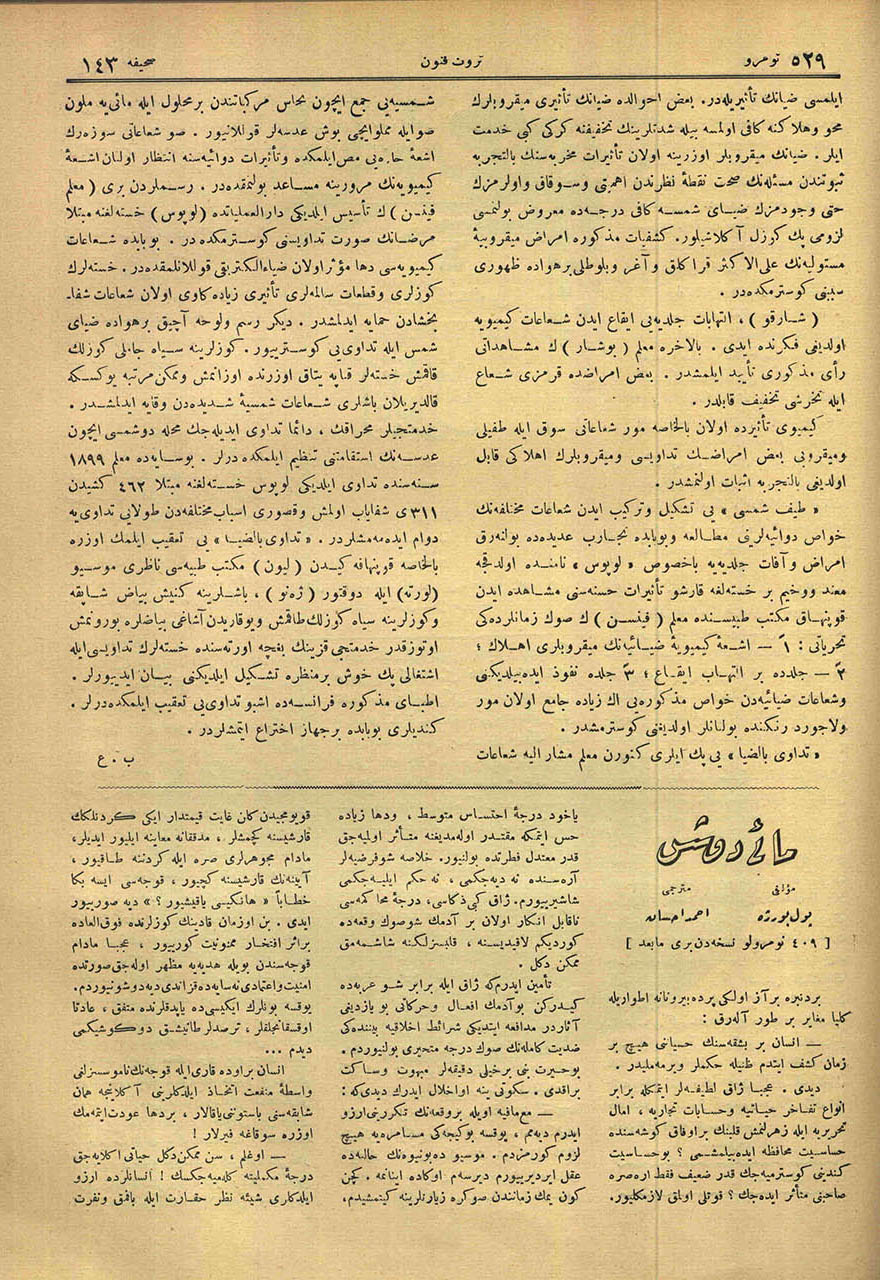 ٥٢٩ نومرو
ثروت فنون
صحیفه ١٤٣
ایلمسی ضیانك تأثیریله‌در. بعض احوالده ضیانك تأثیری میقروبلرك
محو وهلاكنه كافی اولمسه بیله شدتلرینك تخفیفنه كركی كبی خدمت
ایلر. ضیانك میقروبلر اوزرینه اولان تأثیرات مخربه‌سنك بالتجربه
ثبوتندن مسئله‌نك صحت نقطهٔ نظرندن اهمیتی وسوقاق واولرمزك
حتی وجودمزك ضیای شمسه كافی درجه‌ده معروض بولنمسی
لزومی پك كوزل آكلاشیلور. كشفیات مذكوره امراض میقروبیهٔ
مستولیه‌نك علی الاكثر قراكلق وآغر وبلوطلی برهواده ظهوری
سببنی كوسترمكده‌در .
( شارقو ) ، التهابات جلدیه‌یی ایقاع ایدن شعاعات كیمیویه
اولدیغی فكرنده ایدی . بالاخره معلم ( بوشار ) ك مشاهداتی
رأی مذكوری تأیید ایلمشدر . بعض امراضده قرمزی شعاع
ایله تخرشی تخفیف قابلدر .
كیمیوی تأثیرده اولان بالخاصه مور شعاعاتی سوق ایله طفیلی
ومیقروبی بعض امراضك تداویسی ومیقروبلرك اهلاكی قابل
اولدیغی بالتجربه اثبات اولنمشدر .
« طیف شمسی » یی تشكیل وتركیب ایدن شعاعات مختلفه‌نك
خواص دوائیه‌لرینی مطالعه وبوبابده تجارب عدیده‌ده بولنه‌رق
امراض وآفات جلدیه‌یه باخصوص « لوپوس » نامنده اولدقجه
معند ووخیم بر خسته‌لغه قارشو تأثیرات حسنه‌سنی مشاهده ایدن
قوپنهاق مكتب طبیسنده معلم ( فینسن ) ك صوك زمانلرده‌كی
تحریاتی : ١ً — اشعهٔ كیمیویهٔ ضیائیه‌نك میقروبلری اهلاك ؛
٢ً — جلدده بر التهاب ایقاع ؛ ٣ً جلده نفوذ ایده‌بیلدیكنی
وشعاعات ضیائیه‌دن خواص مذكوره‌یی اك زیاده جامع اولان مور
ولاجورد رنكنده بولنانلر اولدیغنی كوسترمشدر .
« تداوی بالضیا » یی پك ایلری كتورن معلم مشار الیه شعاعات
شمسیه‌یی جمع ایچون نحاس مركباتندن بر محلول ایله مائی‌یه ملون
صو ایله مملو ایچی بوش عدسه‌لر قوللانیور . صو شعاعاتی سوزه‌رك
اشعهٔ حاره‌یی مص ایلمكده وتأثیرات دوائیه‌سنه انتظار اولنان اشعهٔ
كیمیویه‌نك مرورینه مساعد بولنمقده‌در . رسملردن بری ( معلم
فینسن ) ك تأسیس ایلدیكی دارالعملیاتده ( لوپوس ) خسته‌لغنه مبتلا
مرضانك صورت تداویسنی كوسترمكده‌در . بوبابده شعاعات
كیمیویه‌سی دها مؤثر اولان ضیاء الكتریقی قوللانلمقده‌در . خسته‌لرك
كوزلری وقطعات سالمه‌لری تأثیری زیاده كاوی اولان شعاعات شفا
بخشادن حمایه ایدلمشدر . دیكر رسم ولوحه آچیق برهواده ضیای
شمس ایله تداوی‌یی كوستریبور . كوزلرینه سیاه جاملی كوزلك
طاقمش خسته‌لر قنپه یتاق اوزرنده اوزانمش وممكن مرتبه یوكسكه
قالدیریلان باشلری شعاعات شمسیهٔ شدیده‌دن وقایه ایدلمشدر .
خدمتجیلر محراقك ، دائما تداوی ایدیله‌جك محله دوشمسی ایچون
عدسه‌نك استقامتنی تنظیم ایلمكده‌درلر . بوسایه‌ده معلم ١٨٩٩
سنه‌سنده تداوی ایلدیكی لوپوس خسته‌لغنه مبتلا ٤٦٢ كشیدن
٣١١ ی شفایاب اولمش وقصوری اسباب مختلفه‌دن طولایی تداوی‌یه
دوام ایده‌مه‌مشلردر . « تداوی بالضیا » یی تعقیب ایلمك اوزره
بالخاصه قوپنهاقه كیدن ( لیون ) مكتب طبیه‌سی ناظری موسیو
( لورته ) ایله دوقتور ( ژه‌نو ) ، باشلرینه كنیش بیاض شاپقه
وكوزلرینه سیاه كوزلك طاقمش ویوقاریدن آشاغی بیاضلره بورونمش
اوتوزقدر خدمتجی قزینك بغچه اورته‌سنده خسته‌لرك تداویسی ایله
اشتغالی پك خوش بر منظره تشكیل ایلدیكنی بیان ایدییورلر .
اطبای مذكوره فرانسه‌ده اشبو تداوی‌یی تعقیب ایلمكده‌درلر .
كندیلری بوبابده برجهاز اختراع ایتمشلردر .
ب . ع
مائی دوقش
مؤلفی
مترجمی
پول بورژه
احمد احسان
[ ٤٠٩ نومرولو نسخه‌دن بری مابعد ]
بردنبره بر آز اولكی پرده‌بیرونانه اطواریله
كلیا مغایر بر طور آله‌رق :
— انسان بر بشقه‌سنك حسیاتنی هیچ بر
زمان كشف ایتدم ظنیله حكملر ویرمه‌ملیدر .
دیدی . عجبا ژاق لطیفه‌لر ایتمكله برابر
انواع تفاخر حیاتیه وحسابات تجاریه ، امال
تحریریه ایله زهرلنمش قلبنك بر اوفاق كوشه‌سنده
حساسیت محافظه ایده‌بیلمشمی ؟ بوحساسیت
كندینی كوسترمیه‌جك قدر ضعیف فقط اره‌صره
صاحبنی متأثر ایده‌جك ؟ قوتلی اولمق لازمكلیور.
یاخود درجهٔ احتساس متوسط ، ودها زیاده
حس ایتمكه مقتدر اوله‌مدیغنه متأثر اولمیه‌جق
قدر معتدل فطرتده بولنیور. خلاصه شوفرضیه‌لر
آره‌سنده نه دیه‌جكمی ، نه حكم ایلیه‌جكمی
شاشیریبورم. ژاق كبی ذكاسی، درجهٔ محاكمه‌سی
ناقابل انكار اولان بر آدمك شوصوك وقعه‌ده
كوردیكم لاقیدیسنه ، قلبسزلكنه شاشمه‌مق
ممكن دكل .
تأمین ایدرم كه ژاق ایله برابر شو عربه‌ده
كیدركن بوآدمك افعال وحركاتی بو یازدیغی
آثارده مدافعه ایتدیكی شرائط اخلاقیه بیننده‌كی
ضدیت كامله‌نك صوك درجه متحیری بولنیوردم .
بوحیرت بنی برخیلی دقیقه‌لر مبهوت وساكت
براقدی . سكوتی ینه اواخلال ایدرك دیدی‌كه :
— مع‌مافیه اویله بروقعه‌نك تكررینی آرزو
ایدرم دیه‌مم ، یوقسه بوكیجه‌كی مسامره‌یه هیچ
لزوم كورمزدم. موسیو ده‌بونیوه‌نك حالنه‌ده
عقل ایردیریبورم دیرسه‌م اوكاده اینانمه . كچن
كون یمك زمانندن صوكره زیارتلرینه كیتمشیدم،
قویومجیدن كان غایت قیمتدار ایكی كردنلكك
قارشیسنه كچمشلر ، مدققانه معاینه ایلیور ایدیلر،
مادام مجوهرلری صره ایله كردننه طاقیور ،
آیینه‌نك قارشیسنه كچیور ، قوجه‌سی ایسه بكا
خطاباً « هانكیسی یاقیشیور ؟ » دیه صوریبور
ایدی . بن اوزمان قادینك كوزلرنده فوق‌العاده
براثر افتخار ممنونیت كوریبور ، عجبا مادام
قوجه‌سندن بویله هدیه‌یه مظهر اوله‌جق صورتده
امنیت واعتمادی نه سایه‌ده قزاندی دیه دوشونیوردم.
یوقسه بونلرك ایكیسی ده یابدقلرنده متفق ، عادتا
اوقسفانجلقلر ، ترصدلر طانیشق دوكوشیكمی
دیدم ...
انسان براوده قاری ایله قوجه‌نك ناموسسزلغی
واسطهٔ منفعت اتخاذ ایلدكلرینی آكلاینجه همان
شاپقه‌سنی باستوننی یاقالار ، بردها عودت ایتمه‌مك
اوزره سوقاغه فیرلار !
— اوغلم ، سن ممكن دكل حیاتی اكلایه‌جق
درجهٔ مكملیته كله‌میه‌جكسك ! انسانلرده ارزو
ایلدكلری شیئه نظر حقارت ایله باقمق ونفرت